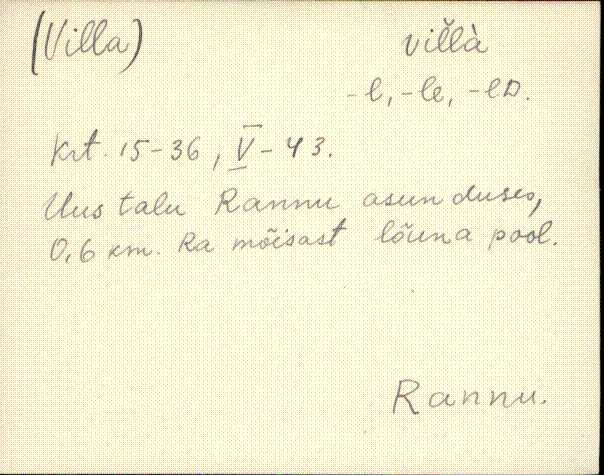 (Villa) vil̆là
-l, -le, -lD.
Krt. 15-36, V-43.
Uus talu Rannu asunduses,
0,6 km. Ra mõisast lõuna pool.
Rannu.